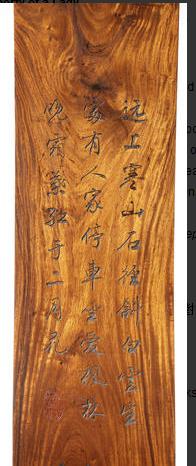 遠上寒山石徑斜白雲生
處有人家停車坐愛楓林
晚霜葉紅于二月花